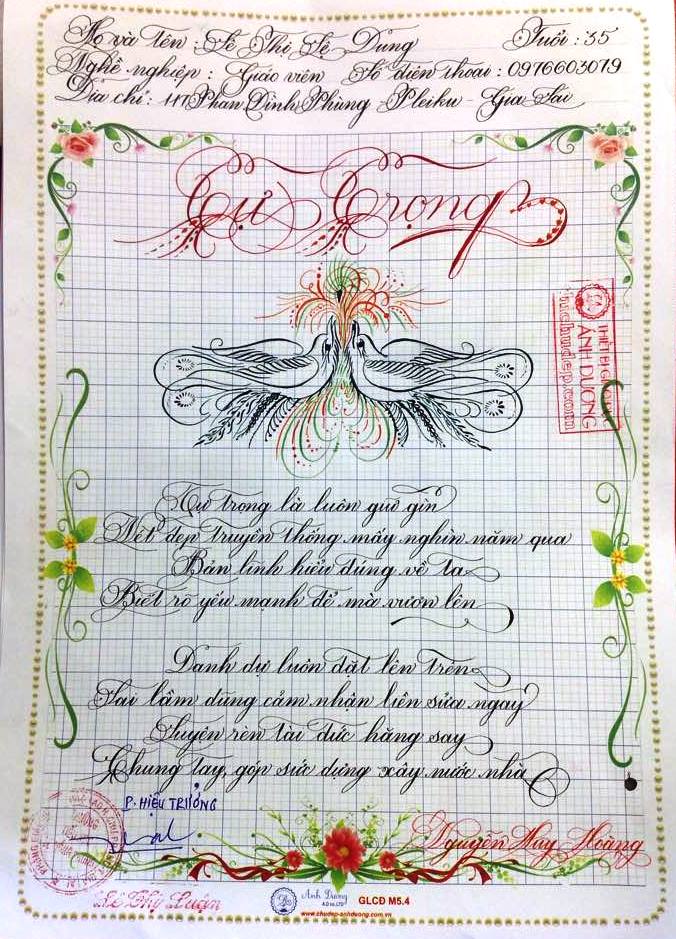 Họ và tên : Lê Thị Lệ Dung Tuổi : 35
Nghề nghiệp : Giáo viên Số điện thoại : 0976603079
Địa chỉ : 117 Phan Đình Phùng Pleiku - Gia Lai
Tự Trọng
THIẾT BỊ GIÁO DỤC
ÁNH DƯƠNG
Tự trọng là luôn giữ gìn
Nét đẹp truyền thống mấy nghìn năm qua
Bản lĩnh hiểu đúng về ta
Biết rõ yếu mạnh để mà vươn lên
Danh dự luôn đặt lên trên
Sai lầm dũng cảm nhận liền sửa ngay
Luyện rèn tài đức hăng say
Chung tay, góp sức dựng xây nước nhà
P. HIỆU TRƯỞNG
Nguyễn Huy Hoàng
Ánh Dương
GLCD M5.4
www.chudep-anhduong.com.vn